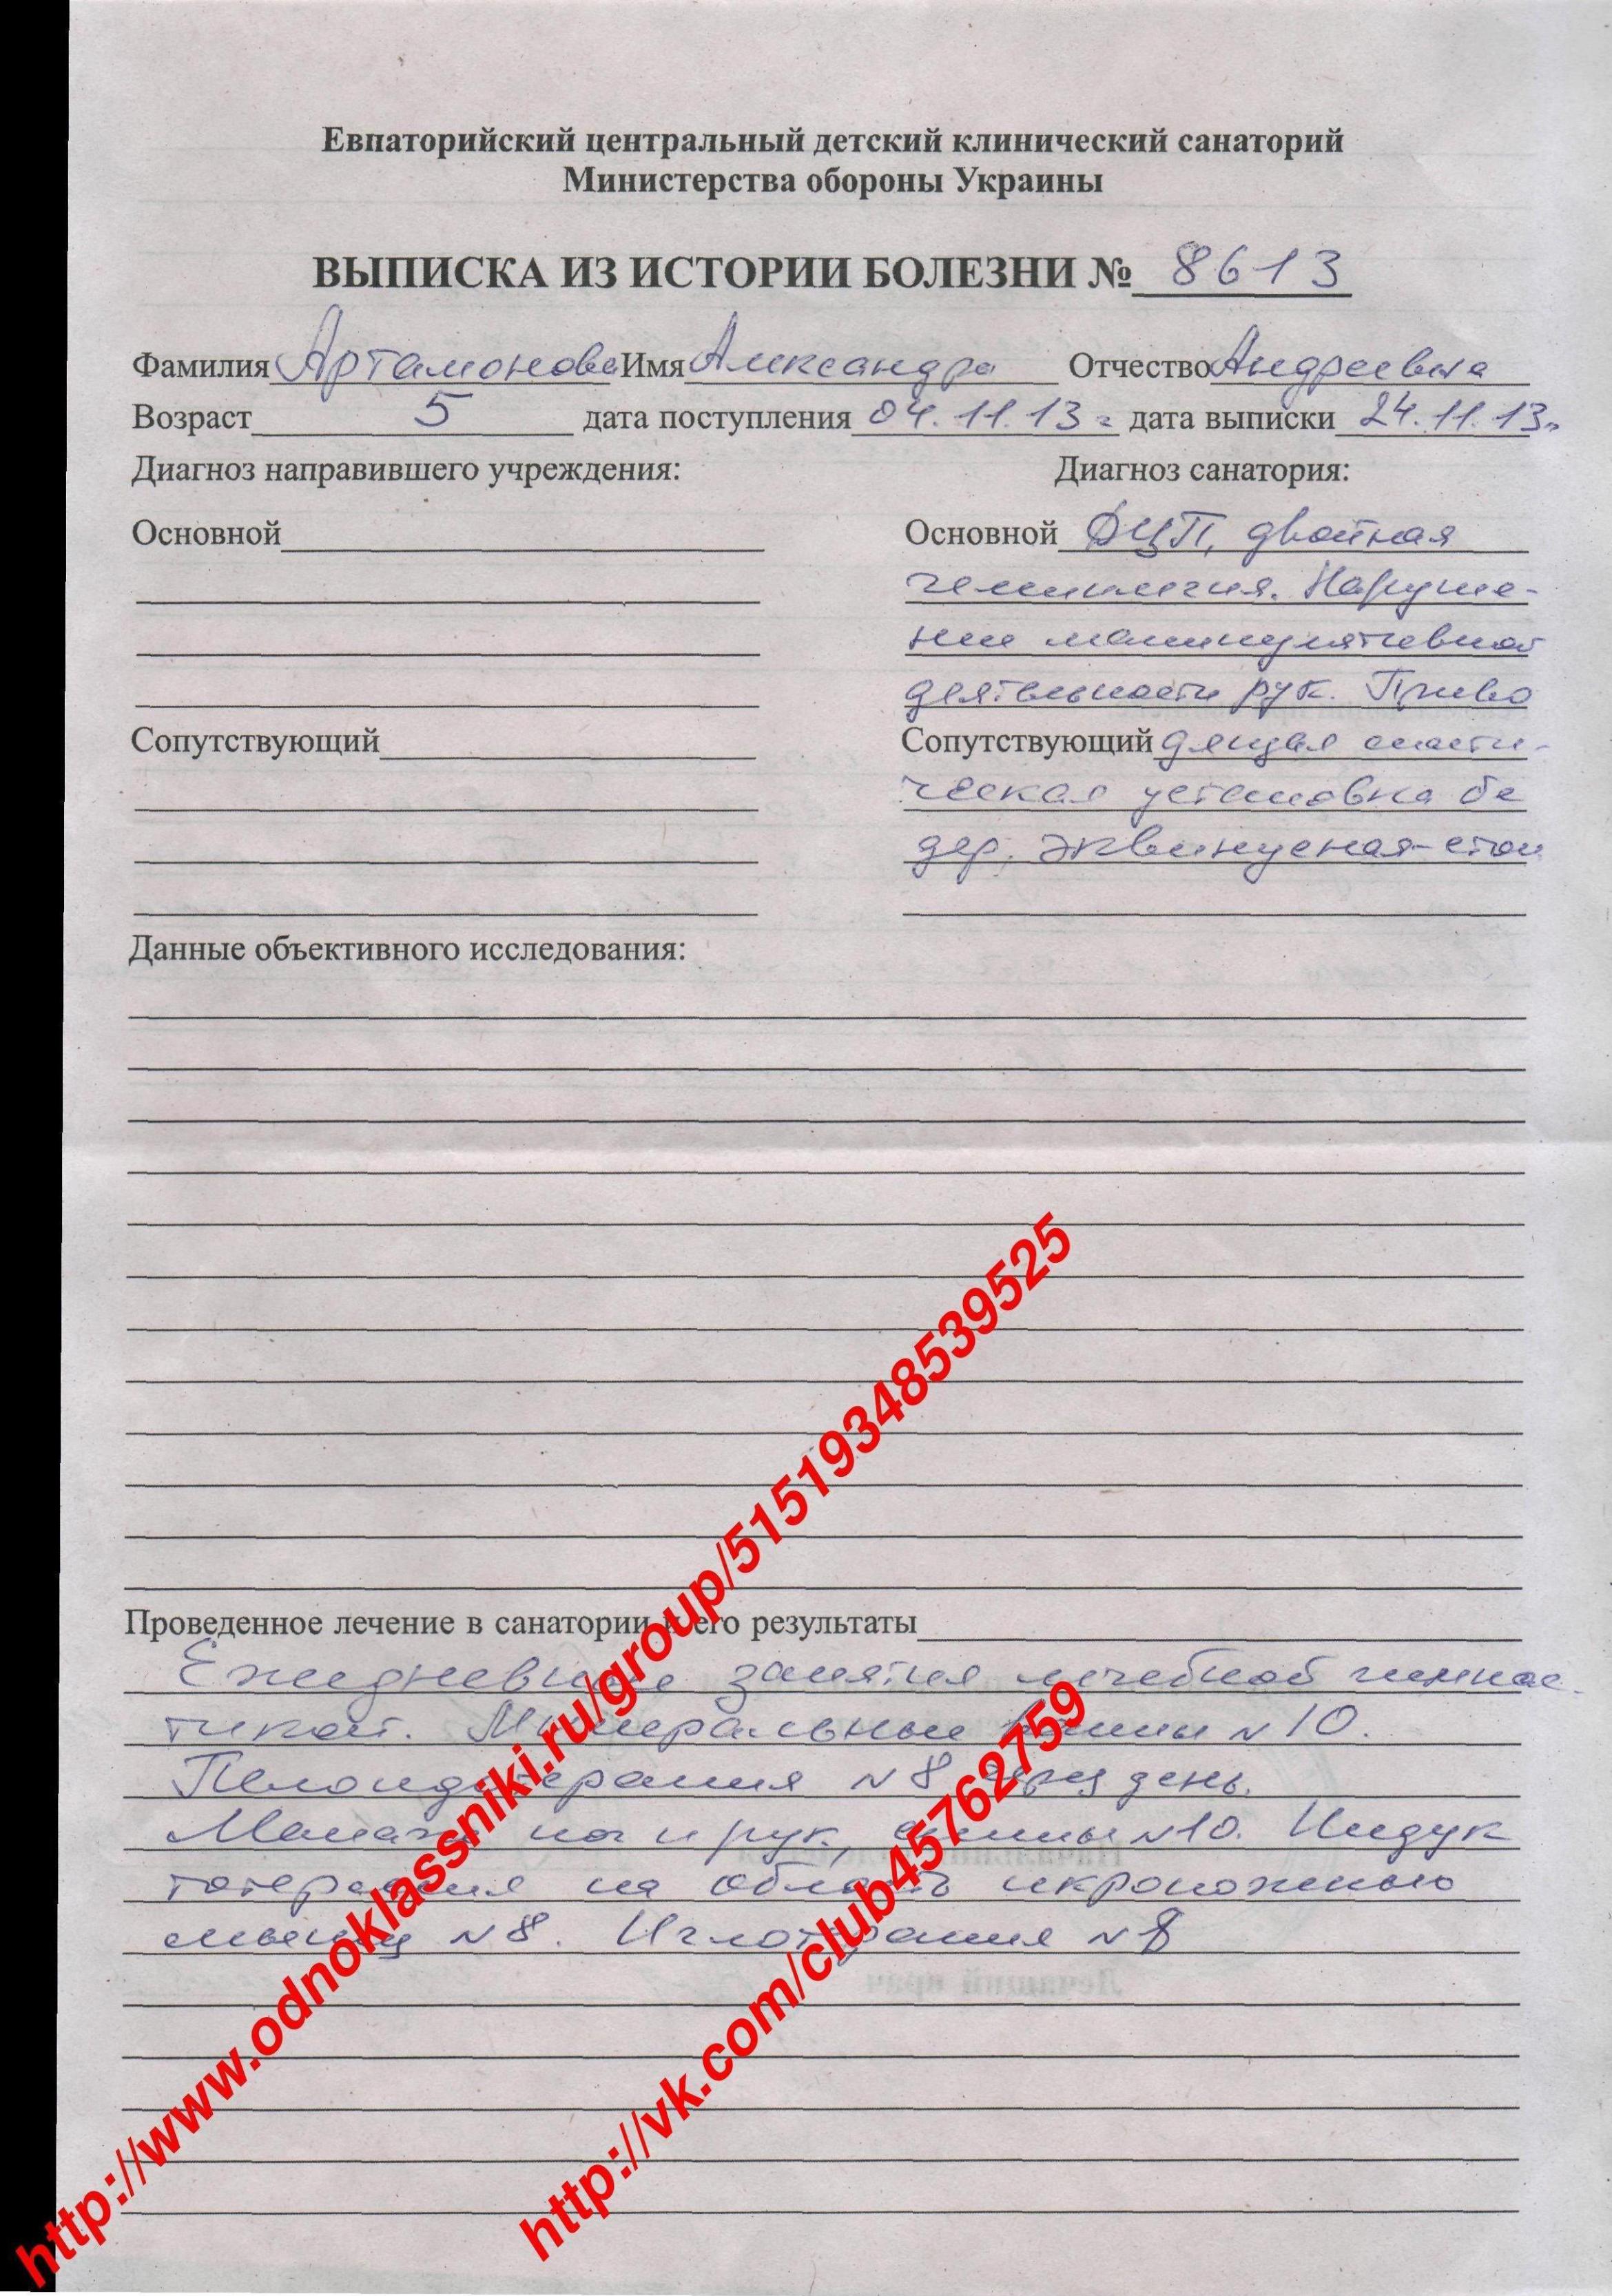 Евпаторийский центральный детский клинический санаторий
Министерства обороны Украины
ВЫПИСКА ИЗ ИСТОРИИ БОЛЕЗНИ № 8613
Фамилия Артамонова Имя Александра Отчество Андреевна
Возраст 5 дата поступления 04.11.13г дата выписки 24.11.13г
Диагноз направившего учреждения: Диагноз санатория:
Основной Основной ДЦП, двойная
гемиплегия. Наруше-
ние манипулятивной
деятельности рук. Приво
Сопутствующий Сопутствующий дящая спасти-
ческая установка бе
дер, эквинусная-стоп
Данные объективного исследования:
Проведенное лечение в санатории и его результаты
Ежедневные занятия лечебной гимнас-
тикой. Минеральные ванны N 10.
Пелоидотерапия N 8 через день.
Массаж ног и рук, спины N10. Индук
тотерапия на область икроножных
мышц N8. Иглотерапия N 8
Лечащий врач
http://www.odnoklassniki.ru/group/51519348539525
http://vk.com/club45762759